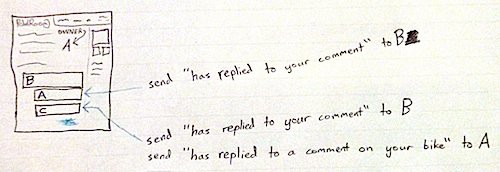 OWNER
A
send "has replied to your comment" to B
B
A
C
send "has replied to your comment" to B
send "has replied to a comment on your bike" to A